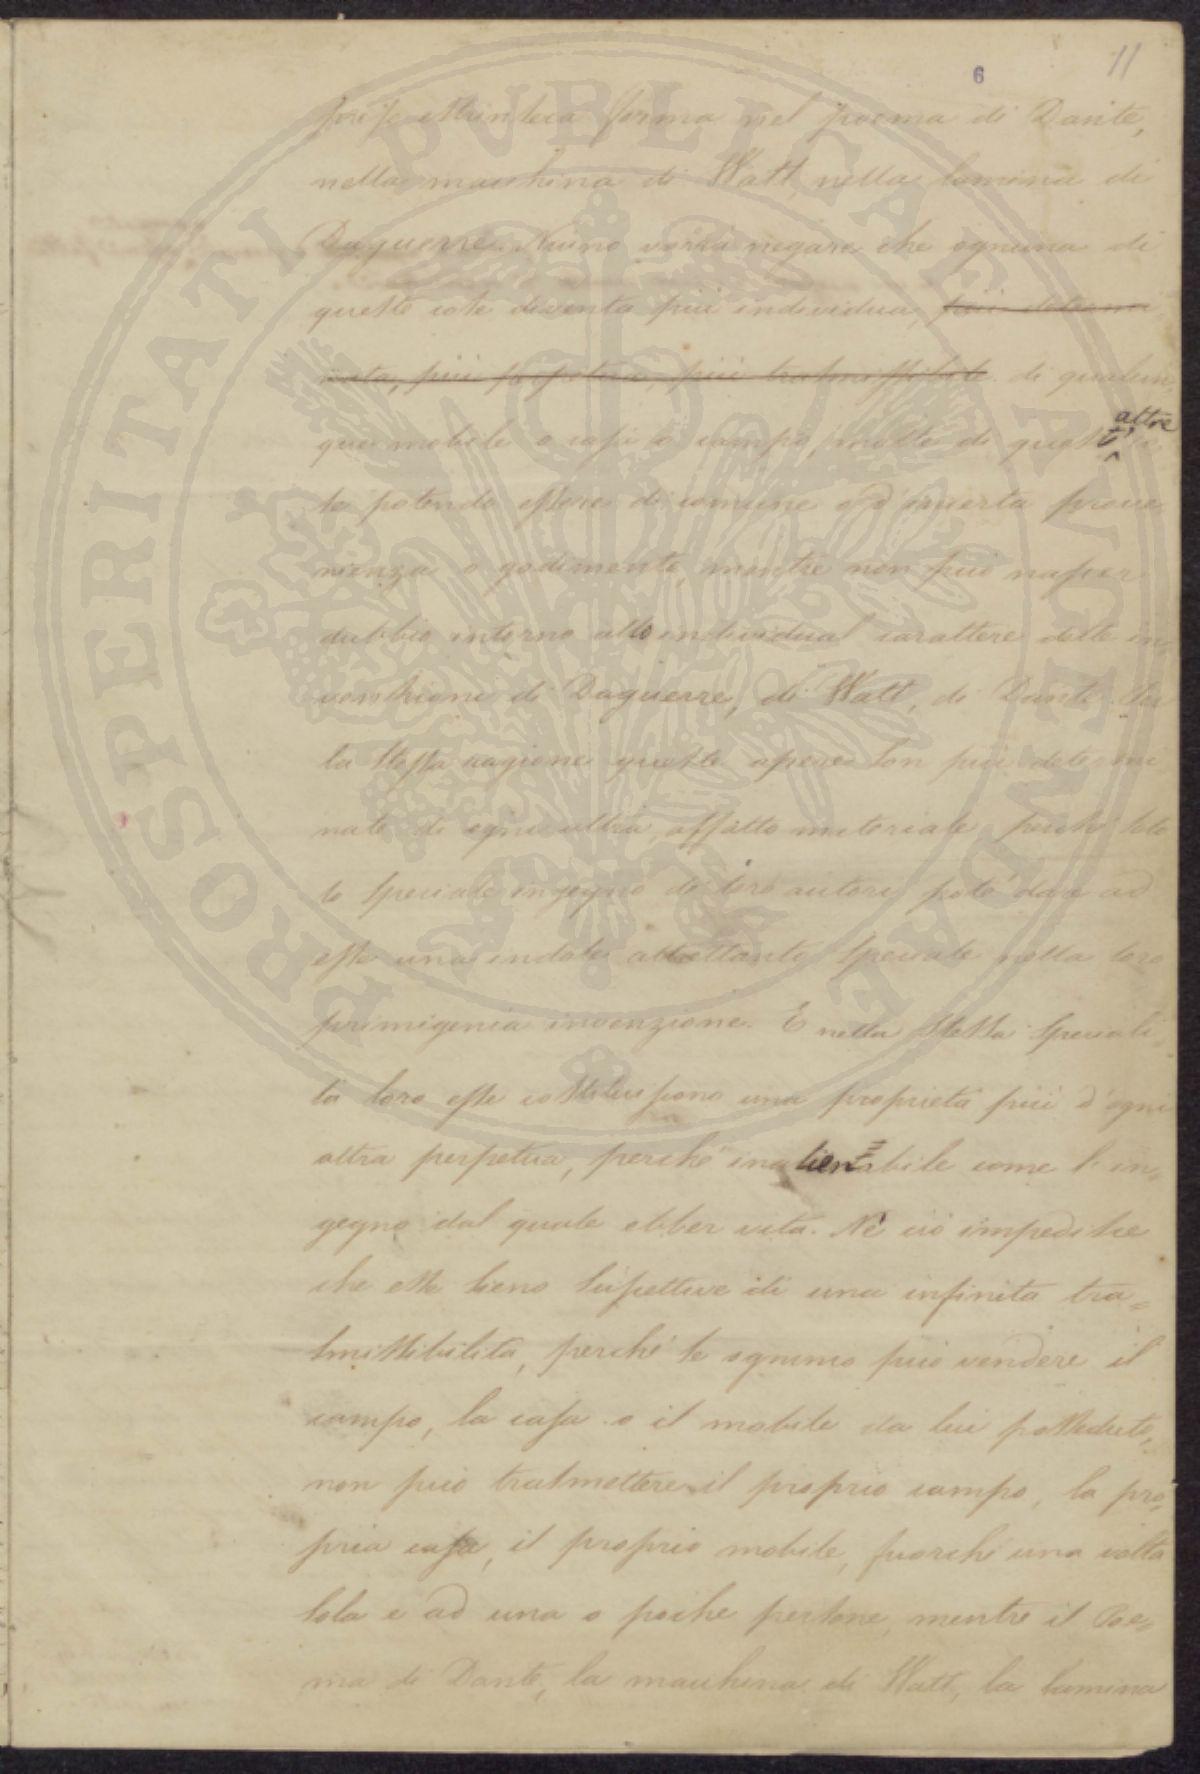 6
11
prese estrinseca forma nel poema di Dante,
nella macchina di Watt, nella lamina di
Daguerre. Niuno vorrà negare che ognuna di
queste cose diventa più individua, più determi
nata, più perpetua, più trasmissibile di qualun,
que mobile o casa o campo, molte di queste altre co
se potendo essere di comune od incerta prove
nienza o godimento, mentre non può nascer
dubbio intorno allo individual carattere delle in,
venzioni di Daguerre, di Watt, di Dante. Per
la stessa ragione queste opere son più determi
nate di ogni altra affatto materiale, perché solo
lo speciale ingegno de' loro autori poté dare ad
esse una indole altrettanto speciale nella loro
primigenia invenzione. E nella stessa speciali,
tà loro esse costituiscono una proprietà più d'ogni
altra perpetua, perché inalienabile come l'in,
gegno dal quale ebber vita. Né ciò impedisce
che esse sieno suscettive di una infinita tra=
smissibilità, perché se ognuno può vendere il
campo, la casa o il mobile da lui posseduto,
non può trasmettere il proprio campo, la pro,
pria casa, il proprio mobile, fuorché una volta
sola e ad una o poche persone, mentre il Poe,
ma di Dante, la macchina di Watt, la lamina
PROSPERITATI PVBLICAE AVGENDAE